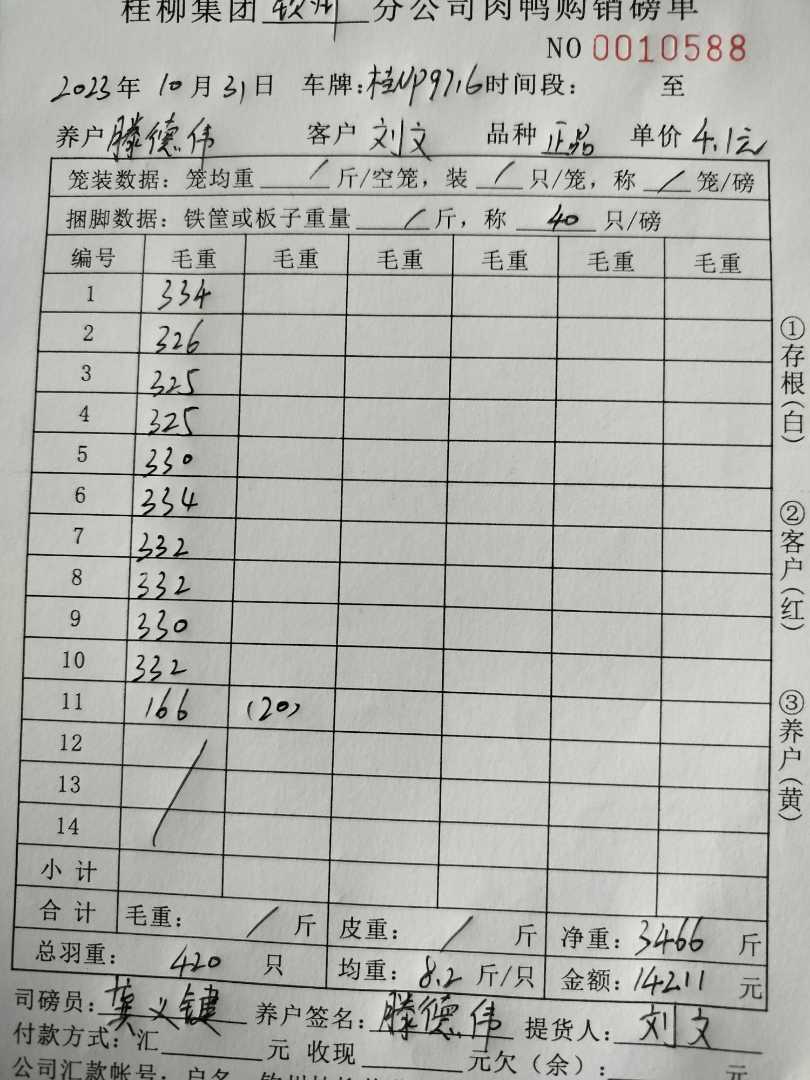 桂柳集团 钦州 分公司肉鸭购销磅单
NO 0010588
2023年 10月31日 车牌:桂NP9716 时间段: 至
养户 滕德伟 客户 刘文 品种 正品 单价 4.1元
笼装数据:笼均重 / 斤/空笼,装 / 只/笼,称 / 笼/磅
捆脚数据:铁筐或板子重量 / 斤,称 40 只/磅
编号 毛重 毛重 毛重 毛重 毛重 毛重
1 334
2 326
3 325
4 325
5 330
6 334
7 332
8 332
9 330
10 332
11 166 (20)
12
13
14
小计
合计 毛重: / 斤 皮重: / 斤 净重:3466 斤
总羽重: 420 只 均重:8.2 斤/只 金额:14211 元
司磅员: 义键 养户签名:滕德伟 提货人:刘文
付款方式:汇 元 收现 元欠(余): 元
公司汇款帐号:户名
①存根(白)
②客户(红)
③养户(黄)